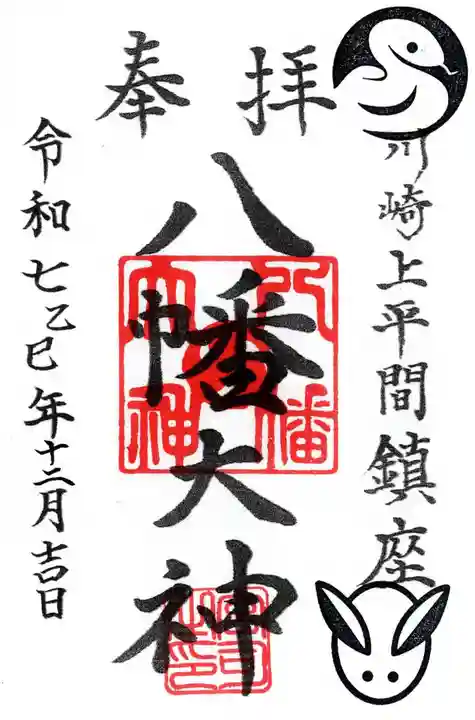 奉拝
川崎上平間鎮座
八幡大神
八幡大神
令和七乙巳年十二月吉日
宮司之印